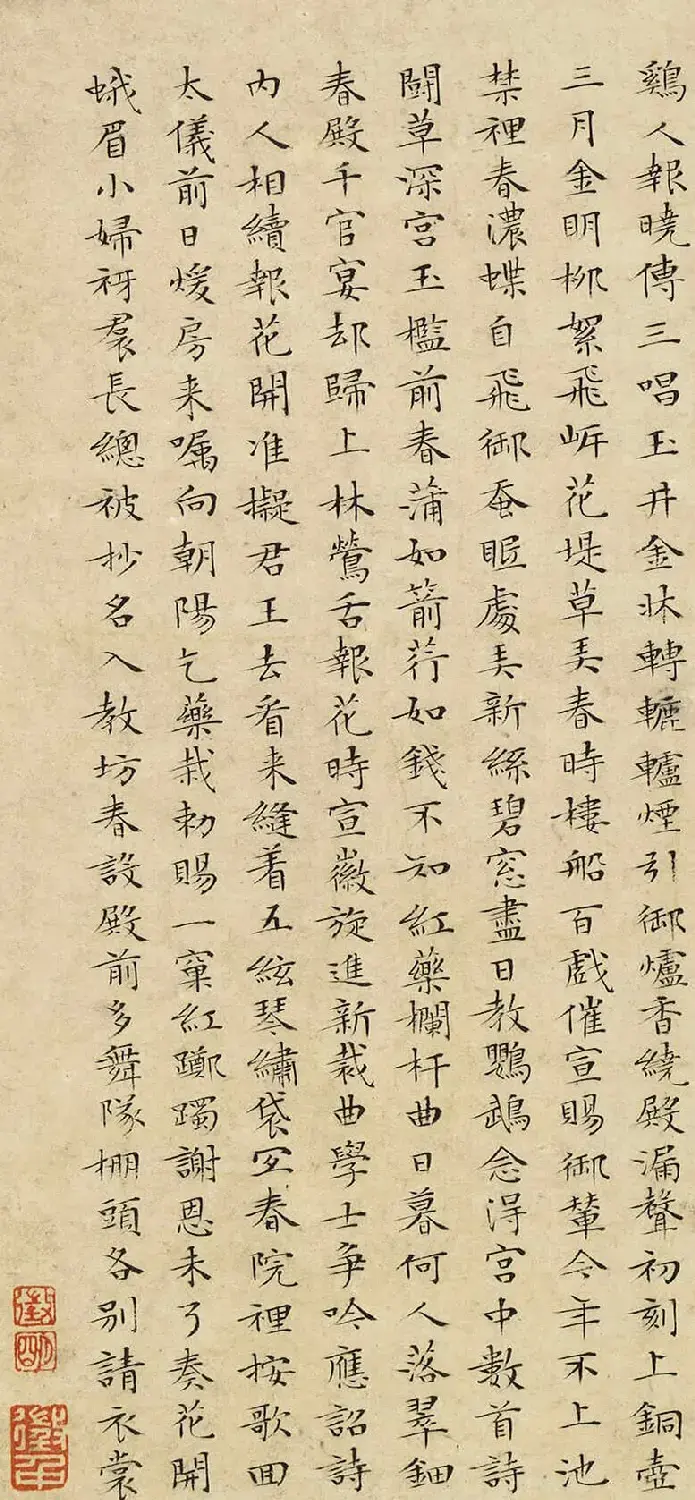 鷄人報曉傳三唱玉井金牀轉轆轤煙引御爐香繞殿漏聲初刻上銅壺
三月金明柳絮飛岸花堤草弄春時樓船百戲催宣賜御輦今年不上池
禁裡春濃蝶自飛御蚕眠處弄新絲碧窓盡日教鸚鵡念得宮中數首詩
鬪草深宮玉檻前春蒲如箭荇如錢不知紅藥欄杆曲日暮何人落翠鈿
春殿千官宴却歸上林鶯舌報花時宣徽旋進新裁曲學士爭吟應詔詩
內人相續報花開准擬君王去看來縫着五絃琴繡袋宜春院裡按歌回
太儀前日煖房来囑向朝陽乞藥栽勅賜一窠紅躑躅謝恩未了奏花開
蛾眉小婦衩裠長總被抄名入教坊春設殿前多舞隊棚頭各別請衣裳
徵明